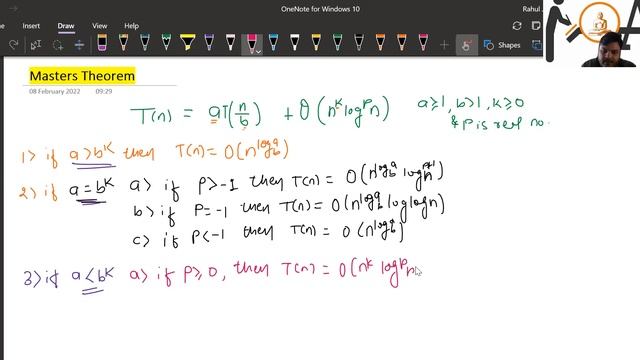 OneNote for Windows 10
Rahul
Shapes
Masters Theorem
08 February 2022 09:29
T(n) = aT(n/b) + θ(n^k log^p n) a≥1, b>1, k≥0
& p is real no.
1> if a>b^k then T(n) = O(n^{log_b a})
2> if a=b^k a> if P>-1 then T(n) = O(n^{log_b a} log^{p+1} n)
b> if P=-1 then T(n) = O(n^{log_b a} loglogn)
c> if P<-1 then T(n) = O(n^{log_b a})
3> if a<b^k a> if P≥0, then T(n) = O(n^k log^p n